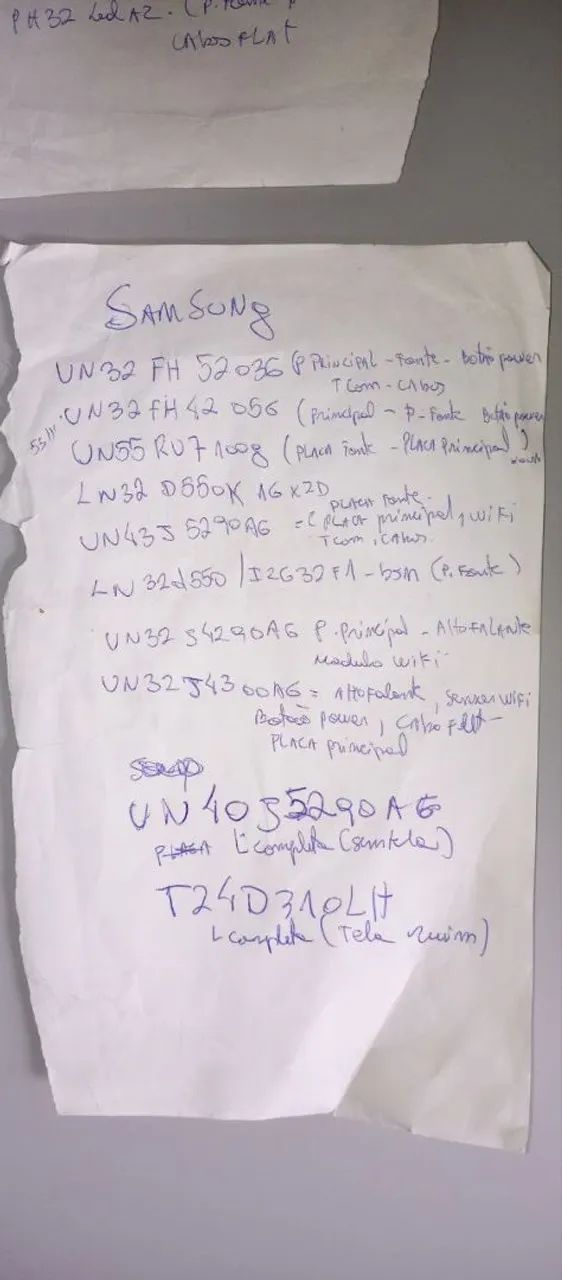 PH32 Led A2. (P.
CABO FLAT
SAMSUNG
UN32 FH 5203G (P PRINCIPAL - Fonte - Botão power
T Com - CABOS
UN32 FH42 05G (Principal - P. Fonte Botão power
55"
UN55 RU7100g (PLACA Fonte - PLACA Principal)
LN32 D550K 1GX2D
PLACA Fonte
UN43J 5290AG = (PLACA principal, WiFi
T Com, CABOS.
LN 32d550 / I2632F1-bsm (P. Fonte)
UN32 J4290AG P. Principal - Alto FALANTE
Modulo WiFi
UN32J4300AG = Alto Falante, Sensor WiFi
Botão power, CABO Flat
PLACA principal
UN40J5290AG
PLACA Completa (sem tela)
T24D310LH
Completa (Tela Ruim)